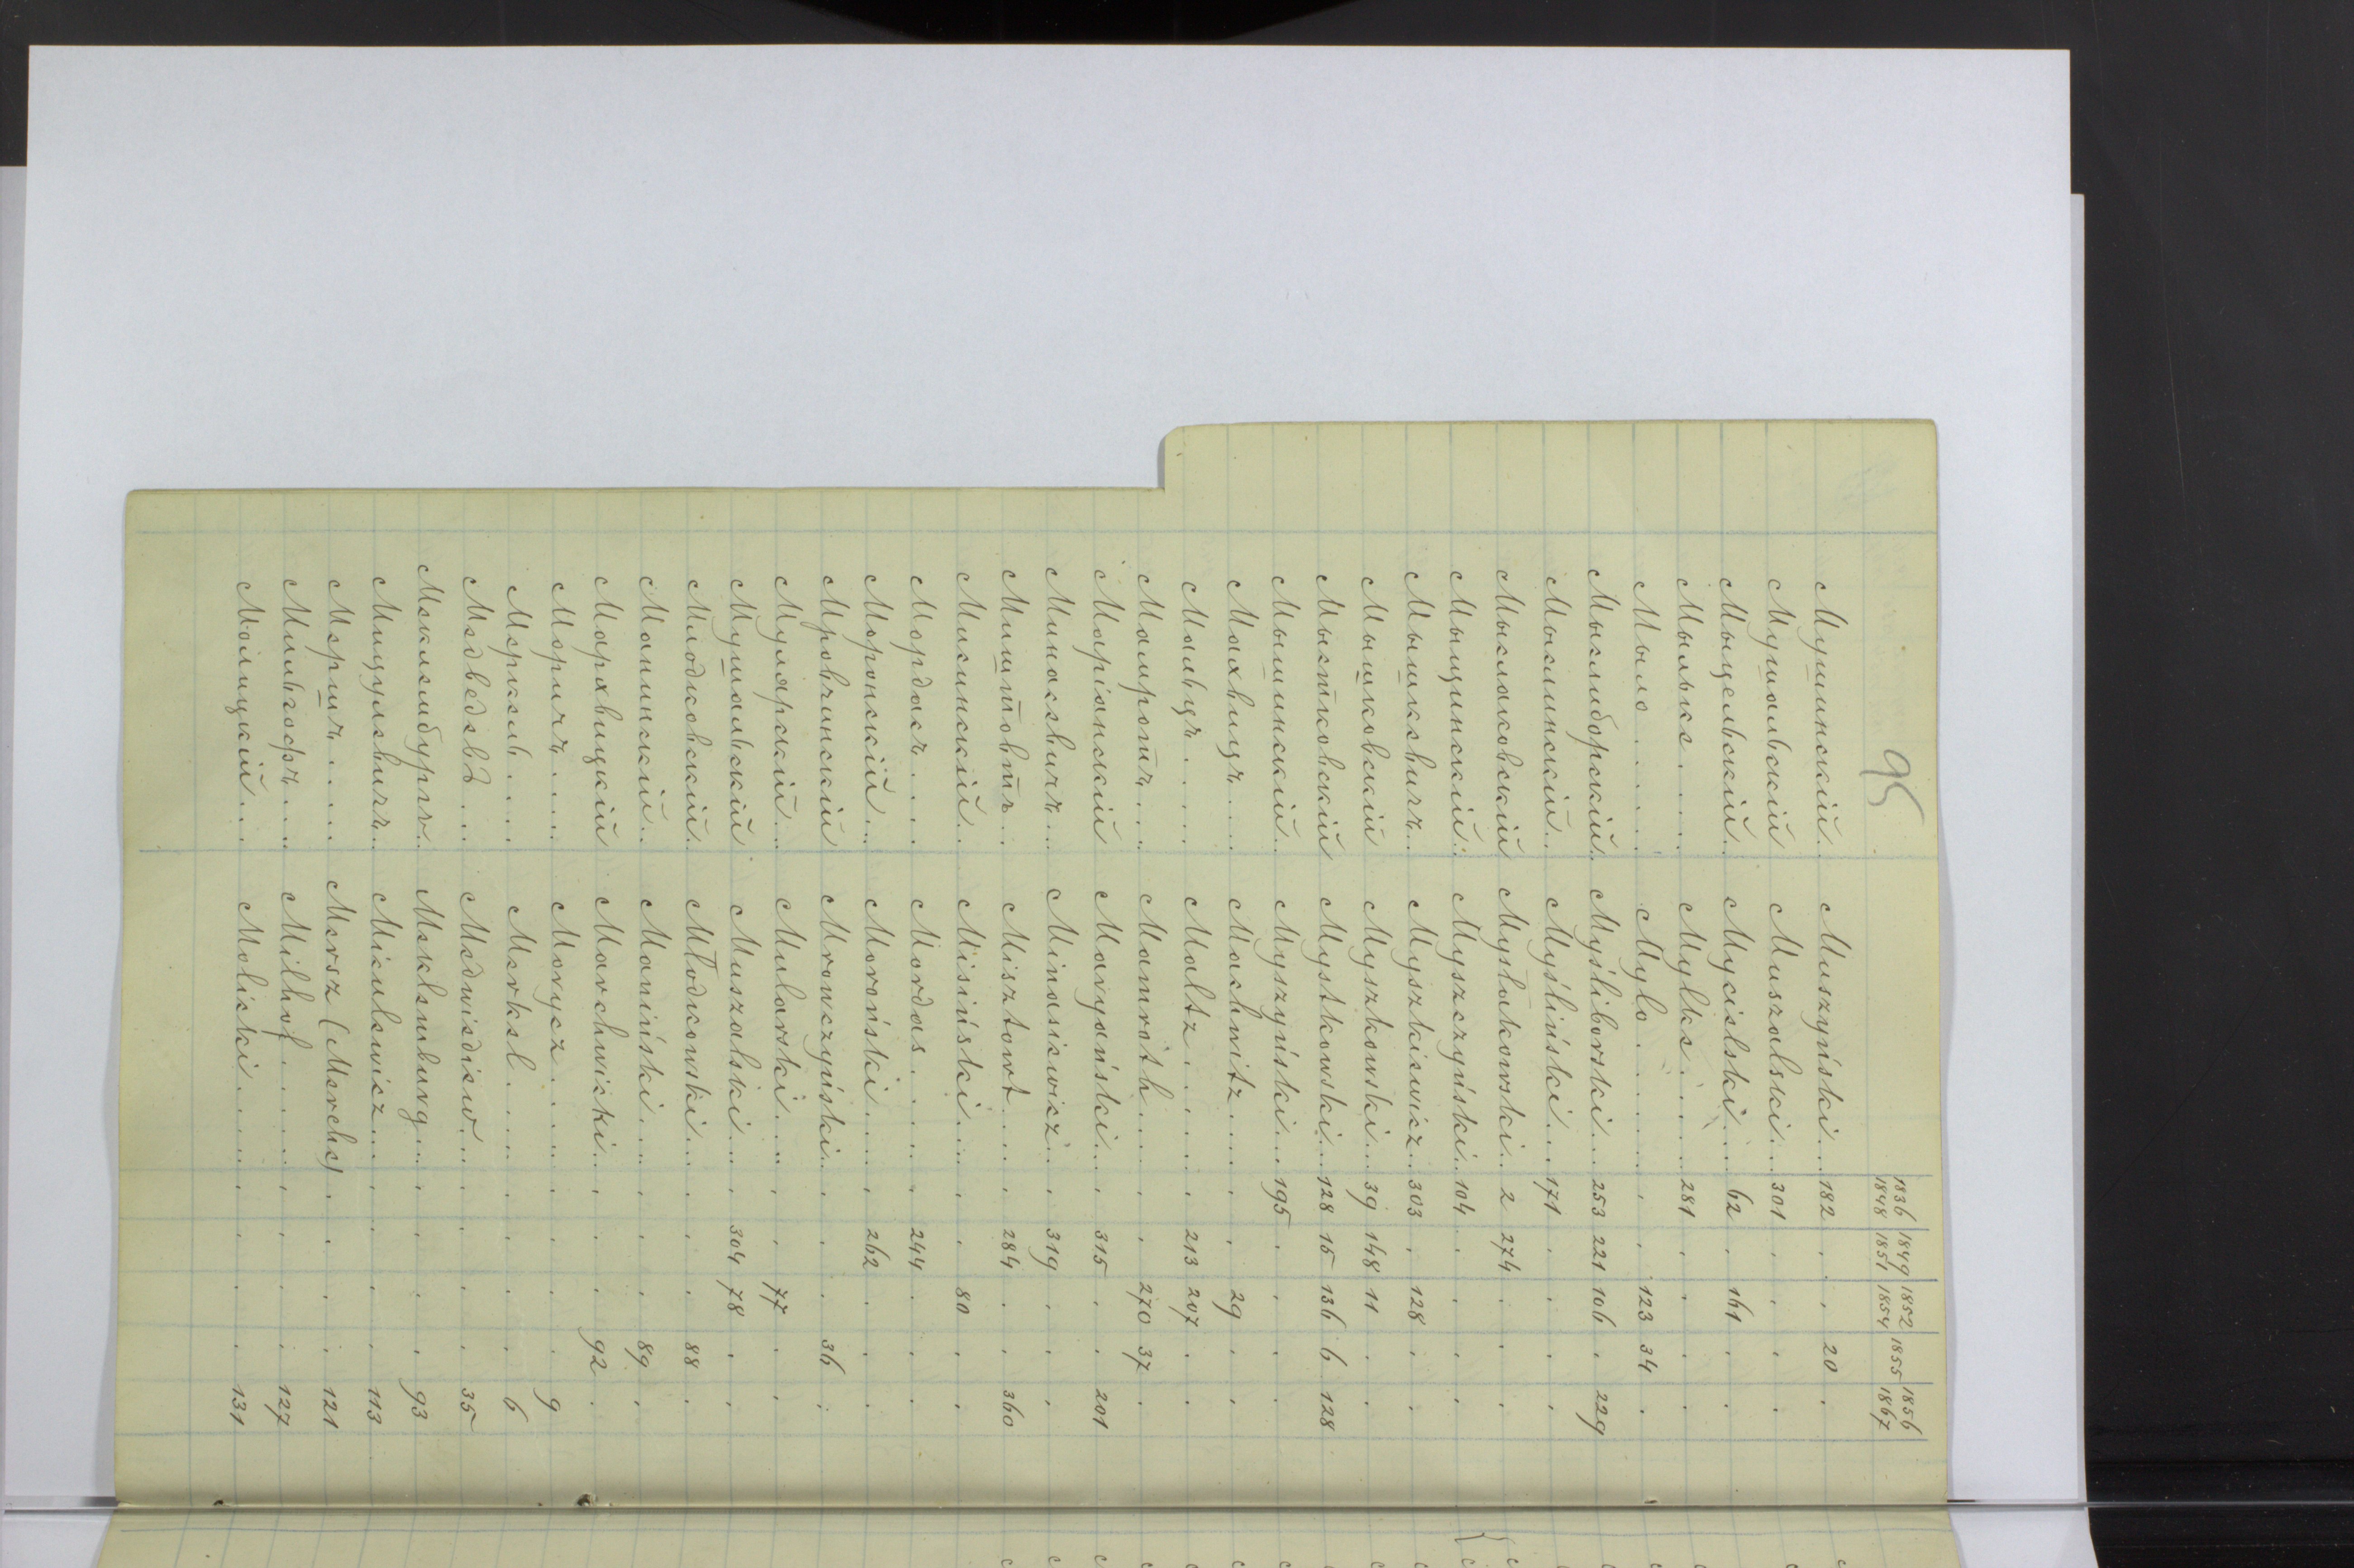 95
1836 1849 1852 1855 1856
1848 1851 1854 1867
Мушинскій.. Muszyński... 182 . . 20 .
Мушальскій Muszalski... 301 . . . .
Мыцельскій.. Mycielski... 62 . 161 . .
Мылька..... Mylka...... 281 . . . .
Мыло...... Mylo....... . . 123 34 .
Мыслиборскій.. Myśliborski... 253 221 106 . 229
Мыслинскій.. Myśliński... 171 . . . .
Мыслаковскій Mysłakowski.. 2 274 . . .
Мыщинскій.. Myszczyński.. 104 . . . .
Мышкевичъ.. Myszkiewicz.. 303 . 128 . .
Мышковскій Myszkowski... 39 148 11 . .
Мыстковскій Mystkowski... 128 15 136 6 128
Мышинскій.. Myszyński... 195 . . . .
Махвицъ.... Machwitz.... . . 29 . .
Мальцъ..... Maltz...... . 213 207 . .
Мамротъ... Mamroth.... . . 270 37 .
Маріанскій Maryański... . 315 . . 201
Минасевичъ... Minasiewicz.. . 319 . . .
Миштовтъ... Misztowt.... . 284 . . 360
Мисинскій.. Misiński.... . . 80 . .
Мордасъ.... Mordas..... . 244 . . .
Моронскій... Moroński.... . 262 . . .
Мровчинскій Mrowczyński.. . . . 36 .
Муларскій... Mularski.... . . 77 . .
Мушальскій Muszalski... . 304 78 . .
Млодковскій.. Młodkowski... . . . 88 .
Манинскій.. Maniński.... . . . 89 .
Мархвицкій Marchwicki.. . . . 92 .
Морицъ.... Morycz..... . . . . 9
Меркель.... Merkel..... . . . . 6
Медведевъ... Miedwiediew... . . . . 35
Мекленбургъ.. Meklenburg... . . . . 93
Мицулевичъ.. Miculewicz... . . . . 113
Мершъ..... Mersz (Merche) . . . . 121
Мильгофъ.... Milhof...... . . . . 127
Молицкій... Molicki..... . . . . 131